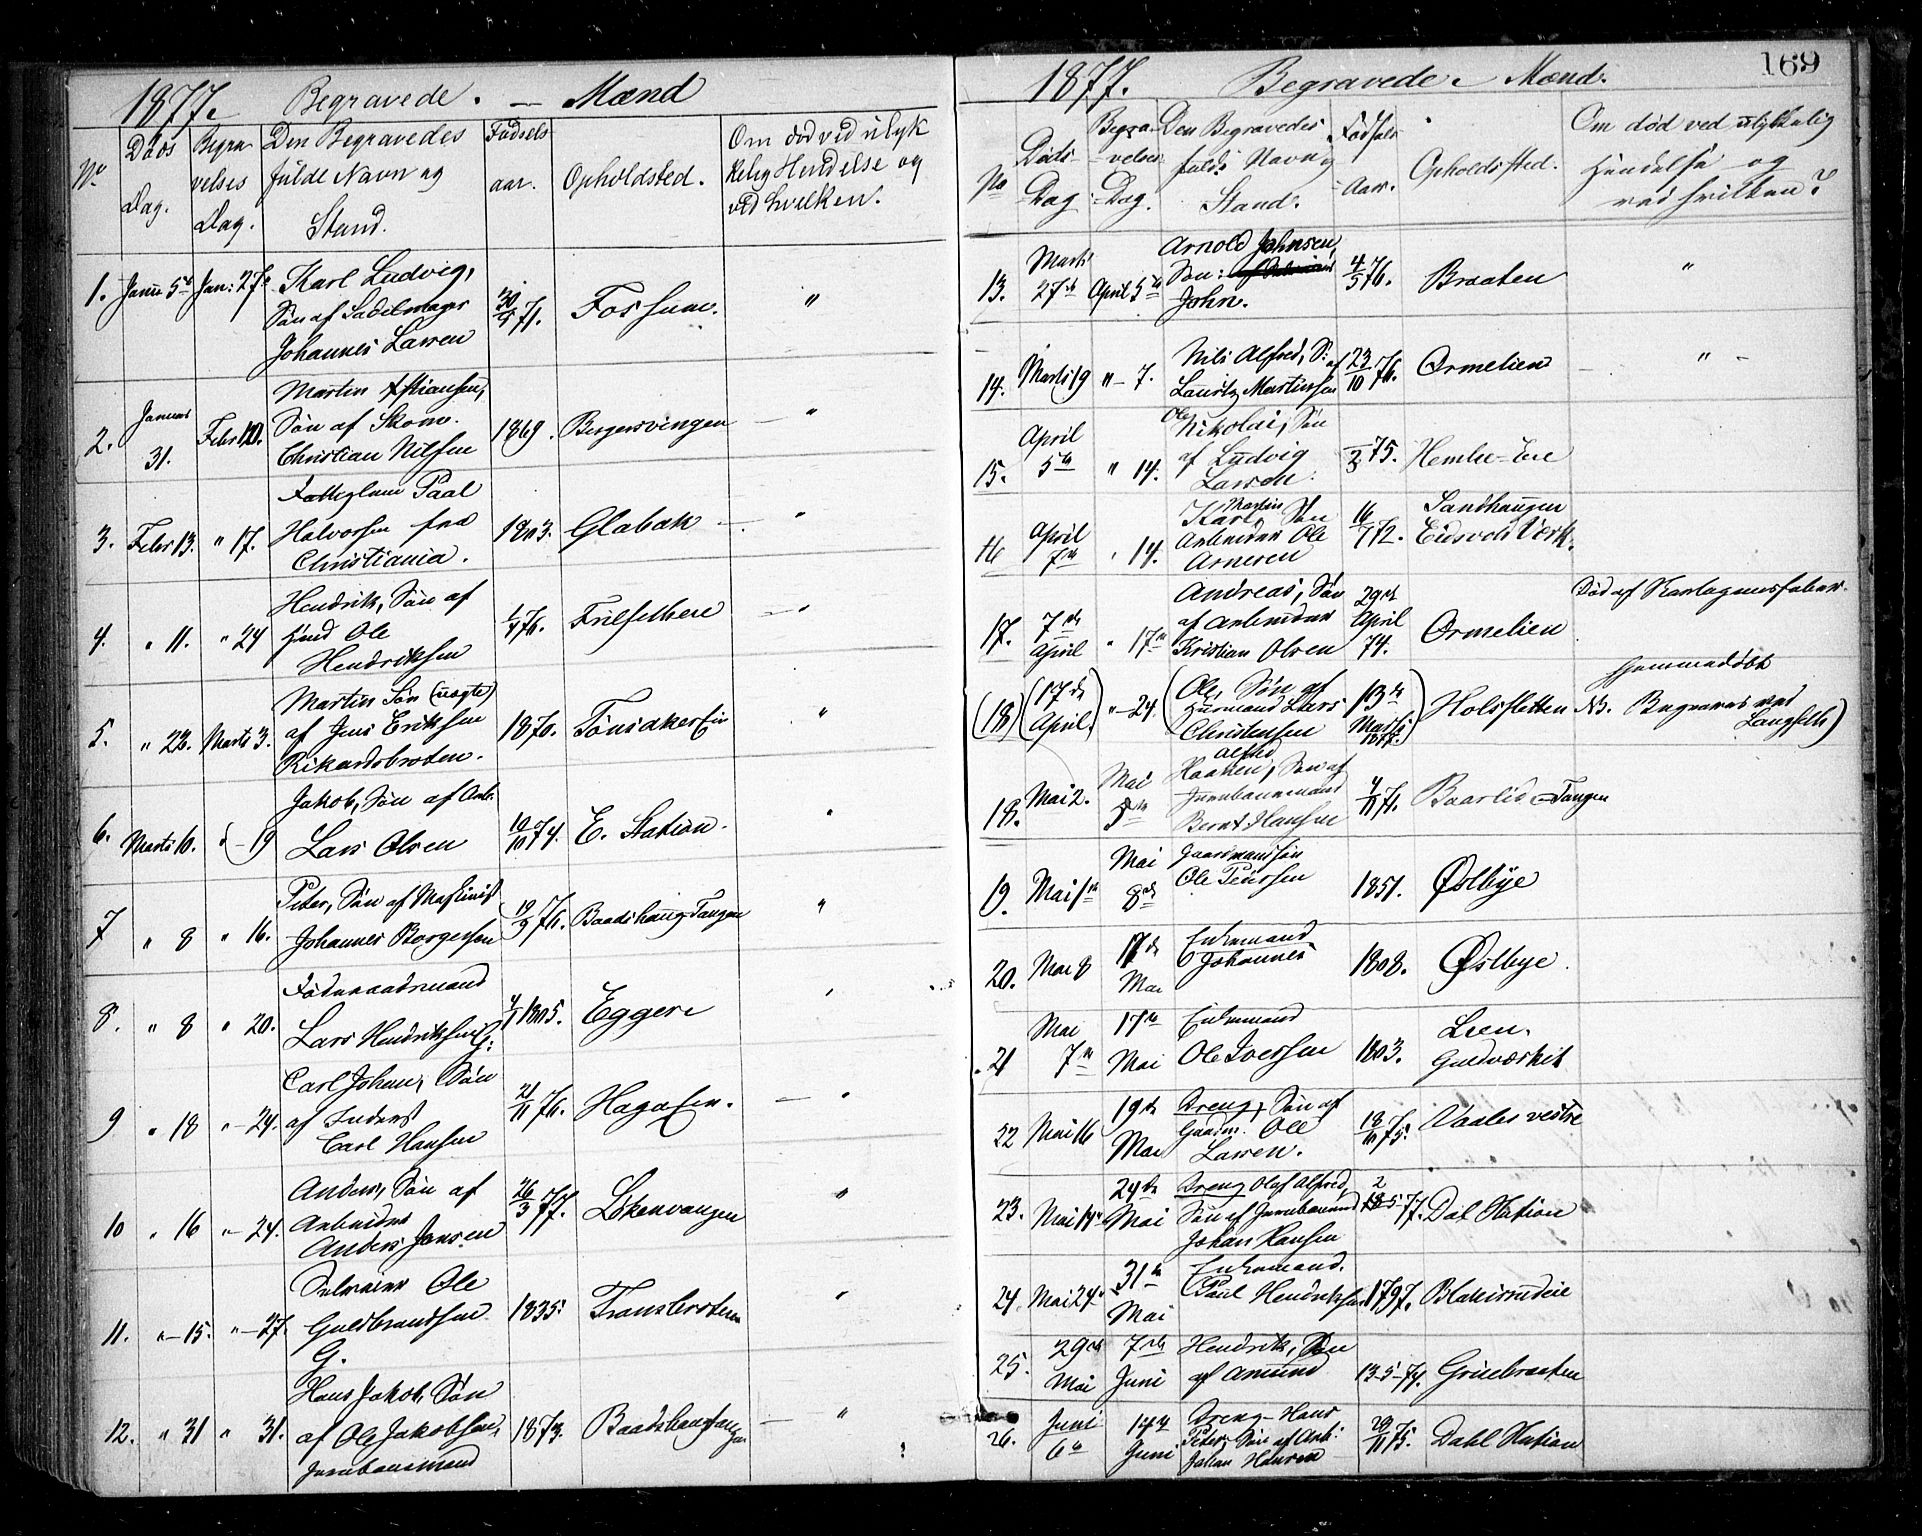 1877. Begravede. — Mænd
No. Døds Dag. Begra velses Dag. Den Begravedes fulde Navn og Stand. Fødsels aar. Opholdsted. Om død ved ulyk kelig Hendelse og ved hvilken.
1. Janu 5te Jan: 27de Karl Ludvig, 30/5 71. Fossum. "
Søn af Sadelmager
Johannes Larsen
2. Januar 31. Febr 10. Martin 1869. Bergersvingen — "
Søn af Skom.
Christian Nilsen
3. Febr 13. " 17. Paal 1803. Glabak — "
Halvorsen fra
Christiania.
4. " 11. " 24 Hendrik, Søn af 76. — "
Ole
Hendriksen
5. " 23. Marts 3. Martin Søn (uægte) 1870. Tønsakerein "
af Jens Eriksen
Rikardsbroten.
6. Marts 10. — 19 Jakob, Søn af Arb. 19/10 74. E. Station. "
Lars Olsen
7 " 8 " 16. Peter, Søn af Maskinist 19/9 76. Baadshaug Tangen "
Johannes Borgersen
8. " 8 " 20. Føderaadsmand 4/1 1805. Eggere
Lars Hendriksen G:
9 " 18 " — 24. Carl Johan, Søn 21/11 76. Hagaein. — "
af Inderst
Carl Hansen
10 " 16 " — 24. Anders, Søn af 26/3 77. Løkenvangen "
Arbeider
Anders Jensen
11. " — 15. " — 27. Selveier Ole 1835. "
Guldbrandsen
G.
12. " 31 " 31. Hans Jakob, Søn 1873. Baadshaugtangen — "
af Ole Jakobsen,
Jernbanemand
169
1877. Begravede Mænd.
No Døds Dag Begra-velses Dag. Den Begravedes fulde Navn og Stand. Fødsels Aar. Opholdssted. Om død ved ulykkelig Hendelse og ved hvilken?
13. Marts 27de April 5te Arnold Johnsen, 4/5 76. Braaten "
Søn:
John.
14. Marts 19 " — 7. Nils Alfred, S: af 23/10 76. Ormelien " -
Lauritz Martinsen
15. April 5te " 14. Ole Nikolai, Søn 75. Hemlie-Eie
af Ludvig
Larsen.
16 April 7de " 14. Karl Martin, Søn 16/1 72. Sandhaugen
Arbeider Ole Eidsvols Værk.
Arnesen
17. 7de April " 17de Andreas, Søn 29de April 74. Ormelien Død af Skarlagensfeber.
af Arbeider
Kristian Olsen
(18) (17de April) " — 24. (Ole, Søn af 13de Marts 1877.) Holsfletten Hjemmedøbt
Lars NB. Begraves ved
Christensen Langseth)
18. Mai 2. Mai 8de Haaken Alfred, Søn af 71. Baarlid - Tangen
Jernbanemand
Bernt Hansen
19. Mai 1ste Mai 8de Gaardmandsøn 1851. Østbye
Ole Peersen
20. Mai 8 17de Mai Enkemand 1808. Østbye
Johannes
21 Mai 7de 17de Mai Enkemand 1803. Leen.
Ole Iversen Guldværket
22 Mai 16 19de Mai Dreng, Søn af 18/10 75. Vaales vestre
Gaardm. Ole
Larsen.
23. Mai 14de 24de Mai Dreng Olaf Alfred, 77. Dal Station
Søn af Jernbanemand
Johan Hansen
24 Mai 24de 31te Mai Enkemand. 1797.
Paul Hendriksen
25. 29de Mai 7de Juni Hendrik, Søn 13-5-74. Griebraaten
af Amund
26. Juni 6te 14de Juni Dreng - Hans 29/11 75. Dahl Station
Peter, Søn af Arb:
Johan Hansen